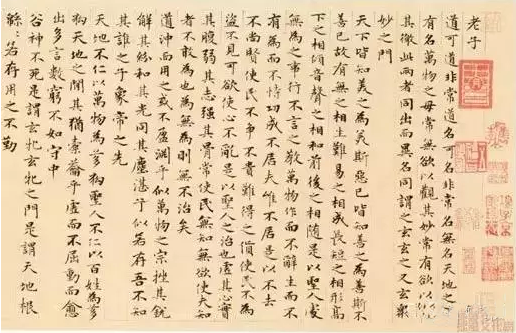 老子
道可道非常道名可名非常名無名天地之
有名萬物之母常無欲以觀其妙常有欲以觀
其徼此兩者同出而異名同謂之玄玄之又玄衆
妙之門
天下皆知美之為美斯惡已皆知善之為善斯不
善已故有無之相生難易之相成長短之相形高
下之相傾音聲之相和前後之相隨是以聖人處
無為之事行不言之教萬物作而不辭生而不
有為而不恃功成不居夫惟不居是以不去
不尚賢使民不爭不貴難得之貨使民不為
盜不見可欲使心不亂是以聖人之治也虛其心實
其腹弱其志强其骨常使民無知無欲使夫知
者不敢為也為無為則無不治矣
道沖而用之或不盈淵乎似萬物之宗挫其銳
解其紛和其光同其塵湛兮似若存吾不知
其誰之子象帝之先
天地不仁以萬物為芻狗聖人不仁以百姓為芻
狗天地之間其猶橐籥乎虛而不屈動而愈
出多言數窮不如守中
谷神不死是謂玄牝玄牝之門是謂天地根
綿綿若存用之不勤